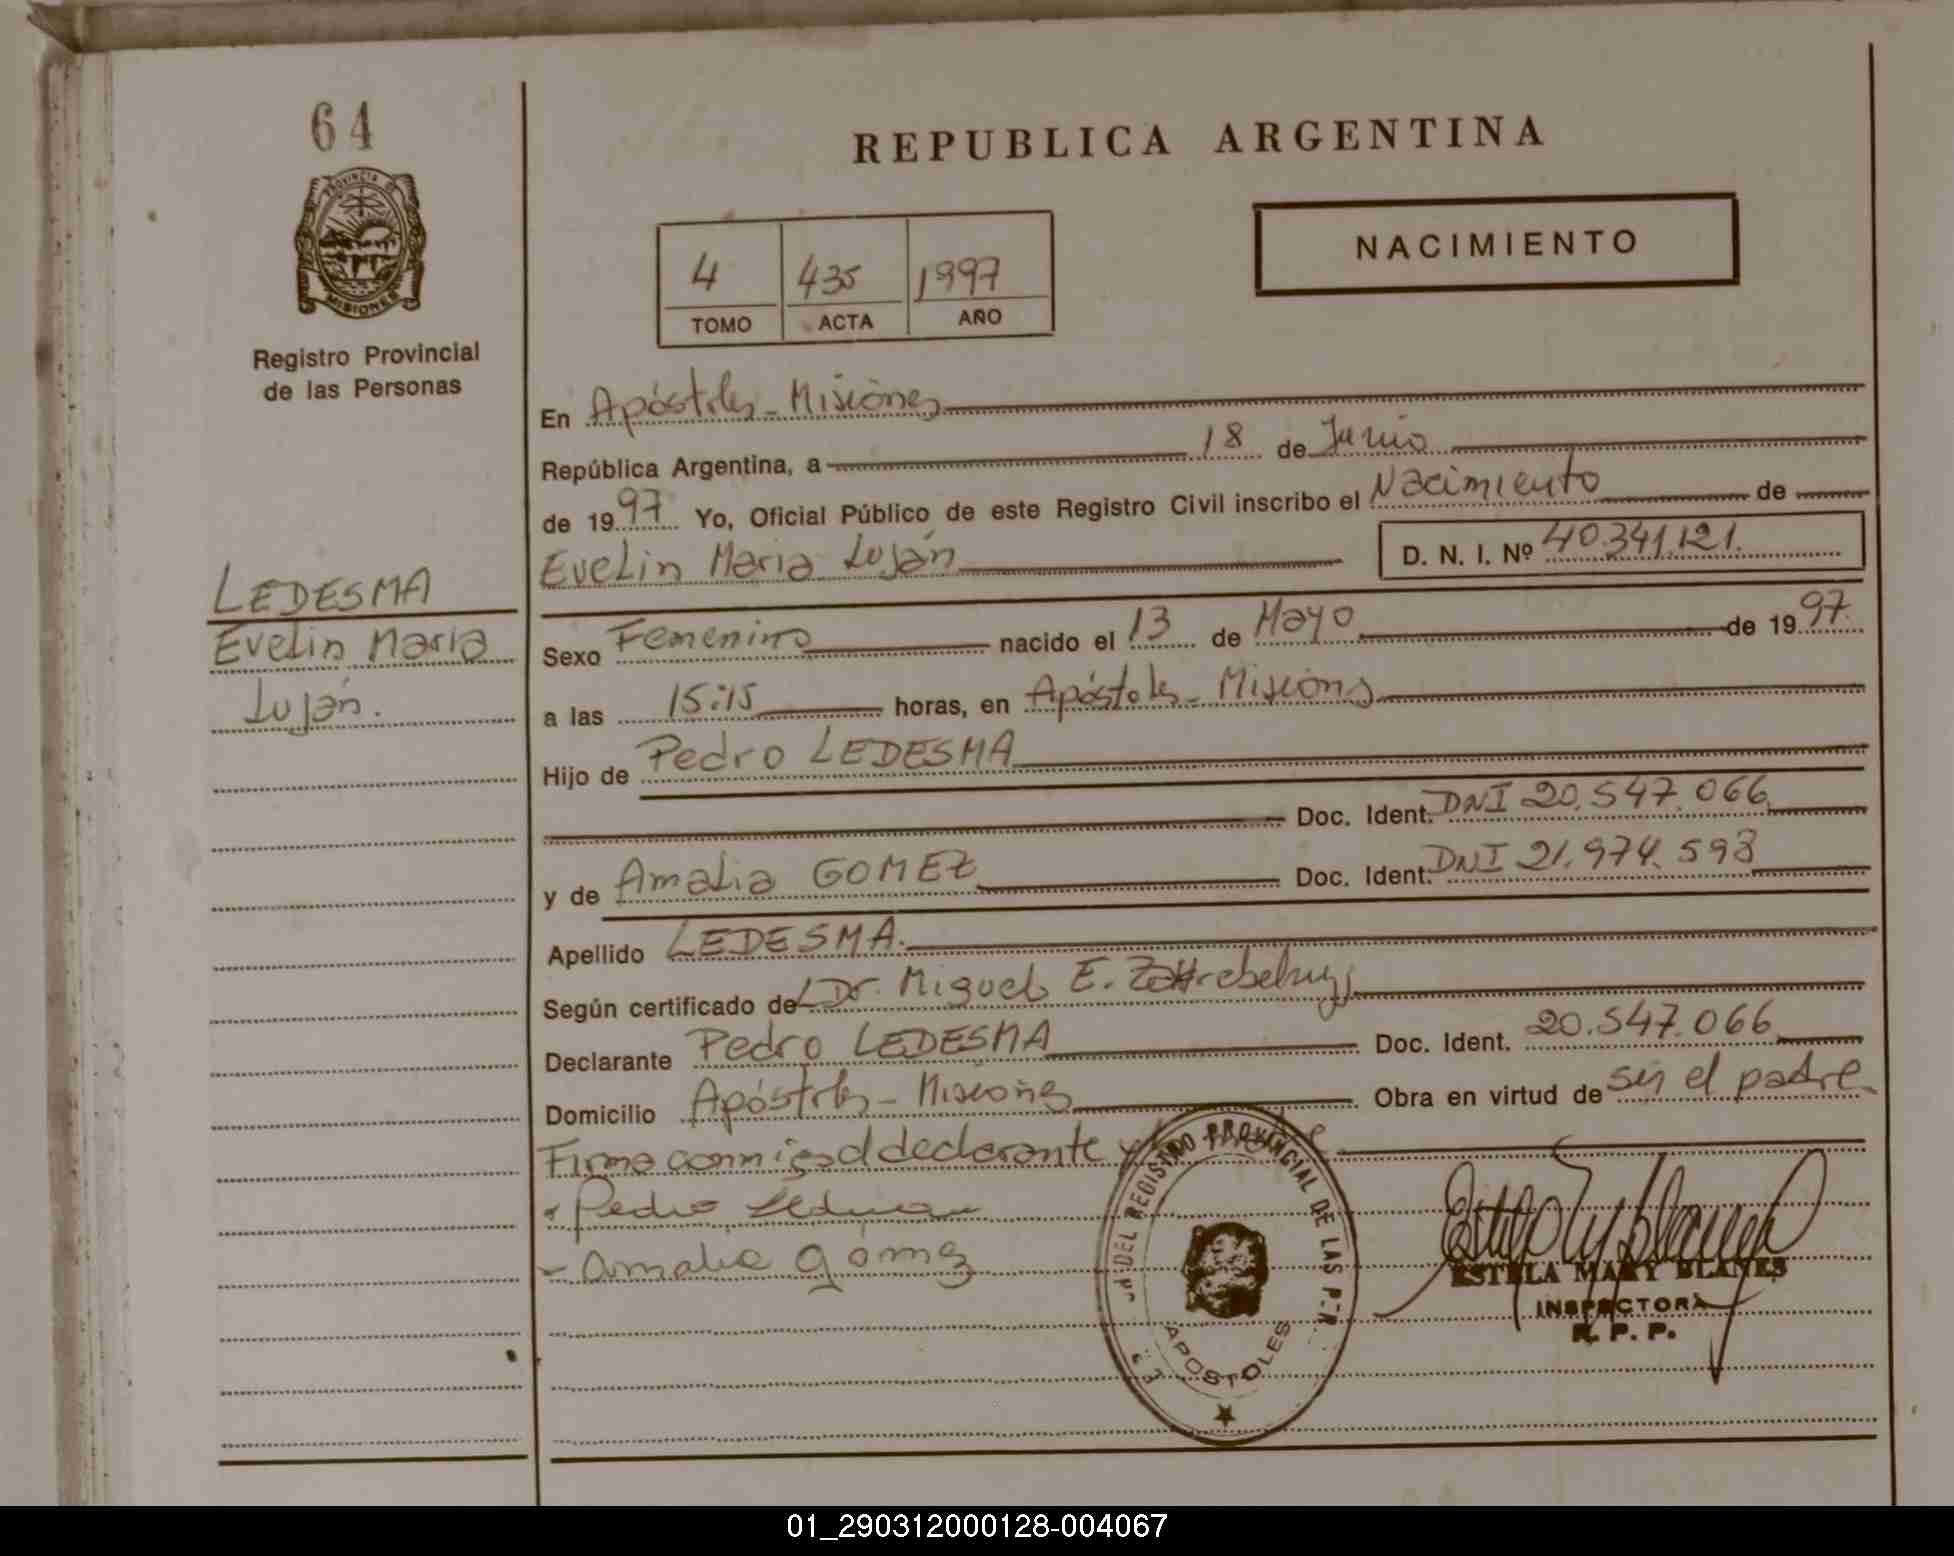 64
PROVINCIA DE
MISIONES
Registro Provincial
de las Personas
REPUBLICA ARGENTINA
NACIMIENTO
4 435 1997
TOMO ACTA AÑO
En Apóstoles - Misiones
República Argentina, a 18 de Junio
de 1997 Yo, Oficial Público de este Registro Civil inscribo el Nacimiento de
Evelin Maria Luján D. N. I. Nº 40.341.121.
LEDESMA
Evelin Maria
Luján.
Sexo Femenino nacido el 13 de Mayo de 1997.
a las 15:15 horas, en Apóstoles - Misiones
Hijo de Pedro LEDESMA
Doc. Ident. DNI 20.547.066
y de Amalia GOMEZ Doc. Ident. DNI 21.974.593
Apellido LEDESMA.
Según certificado de Dr. Miguel E.
Declarante Pedro LEDESMA Doc. Ident. 20.547.066
Domicilio Apóstoles - Misiones Obra en virtud de ser el padre
Firma conmigo el declarante y
Pedro Ledesma
Amalia Gómez
DEL REGISTRO PROVINCIAL DE LAS PER
APOSTOLES
ESTELA MARY BLANES
INSPECTORA
R. P. P.
01_290312000128-004067